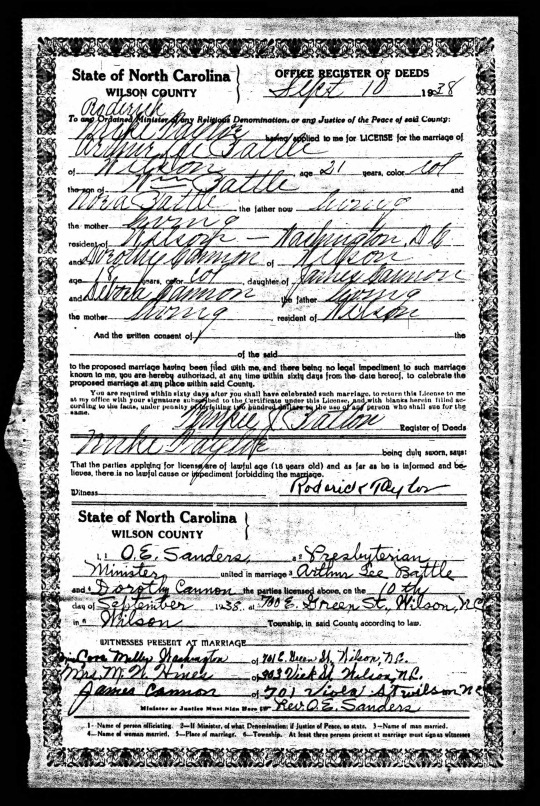 State of North Carolina
WILSON COUNTY
OFFICE REGISTER OF DEEDS
Sept 10 1938
Roderick
To any Ordained Minister of any Religious Denomination, or any Justice of the Peace of said County:
Taylor having applied to me for LICENSE for the marriage of
Arthur Lee Battle
of Wilson age 21 years, color col
the son of Wm Battle and
Nora Battle the father now living
the mother living
resident of Wilson - Washington, D C
and Dorothy Cannon of Wilson
age 18 years, color col daughter of James Cannon
and Debora Cannon the father living
the mother living resident of Wilson
And the written consent of the
of the said
to the proposed marriage having been filed with me, and there being no legal impediment to such marriage
known to me, you are hereby authorized, at any time within sixty days from the date hereof, to celebrate the
proposed marriage at any place within said County.
You are required within sixty days after you shall have celebrated such marriage, to return this License to me
at my office with your signature subscribed to the Certificate under this License, and with blanks herein filled ac-
cording to the facts, under penalty of forfeiting two hundred dollars to the use of any person who shall sue for the
same.
Register of Deeds
Taylor being duly sworn, says:
That the parties applying for license are of lawful age (18 years old) and as far as he is informed and be-
lieves, there is no lawful cause or impediment forbidding the marriage.
Witness Roderick Taylor
State of North Carolina
WILSON COUNTY
I, O.E. Sanders, a Presbyterian
Minister united in marriage Arthur Lee Battle
and Dorothy Cannon the parties licensed above, on the 10th
day of September 1938 at 700 E. Green St., Wilson, N.C.
in Wilson Township, in said County according to law.
WITNESSES PRESENT AT MARRIAGE
Cora Washington of 701 E. Green St, Wilson, N.C.
Mrs. M. W. Hines of 903 Vick St Wilson, N.C.
James Cannon of 701 Viola St Wilson N C
Minister or Justice Must Sign Here Rev. O.E. Sanders
1- Name of person officiating. 2-If Minister, of what Denomination; if Justice of Peace, so state. 3 -Name of man married.
4-Name of woman married. 5-Place of marriage. 6-Township. At least three persons present at marriage must sign as witnesses